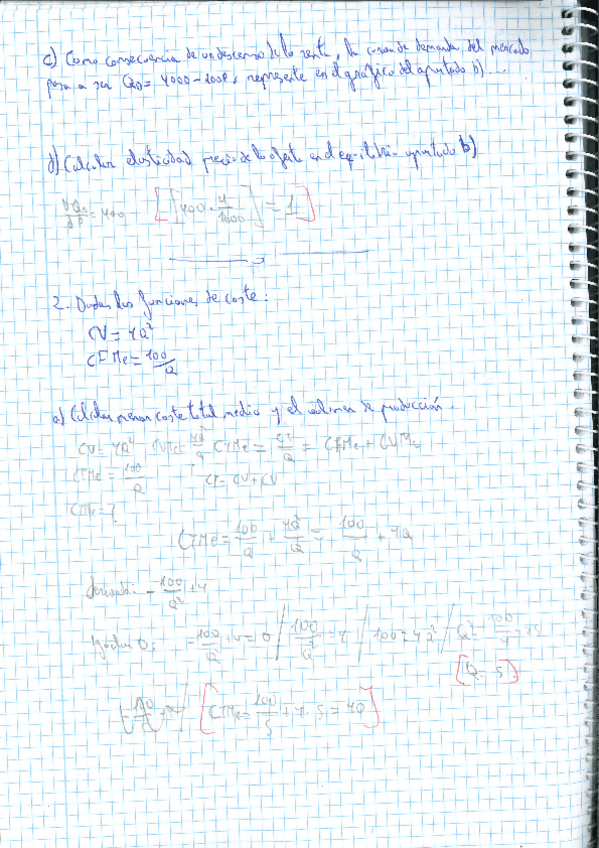 c) Como consecuencia de un descenso de la renta, la curva de demanda del mercado
pasa a ser QD= 4000-200P, represente en el gráfico del apartado b)....
d) Calcular elasticidad precio de la oferta en el equilibrio apartado b)
= 400 [[400 · 4/1000] = 1]
2. Dadas las funciones de coste:
CV= 4Q²
CFMe= 100/Q
a) Calcular menor coste total medio y el volumen de producción.
CV= 4Q² CVMe= 4Q²/Q CTMe= CT/Q = CFMe + CVMe
= 100/Q
CTMe= ?
CTMe= 100/Q + 4Q²/Q = 100/Q + 4Q
derivada: -100/Q² + 4
Igualar 0: -100/Q² + 4 = 0 / 100/Q² = 4 / 100 = 4Q² / Q² = 100/4 = 25
[Q = 5]
[CTMe= 100/5 + 4 · 5 = 40]